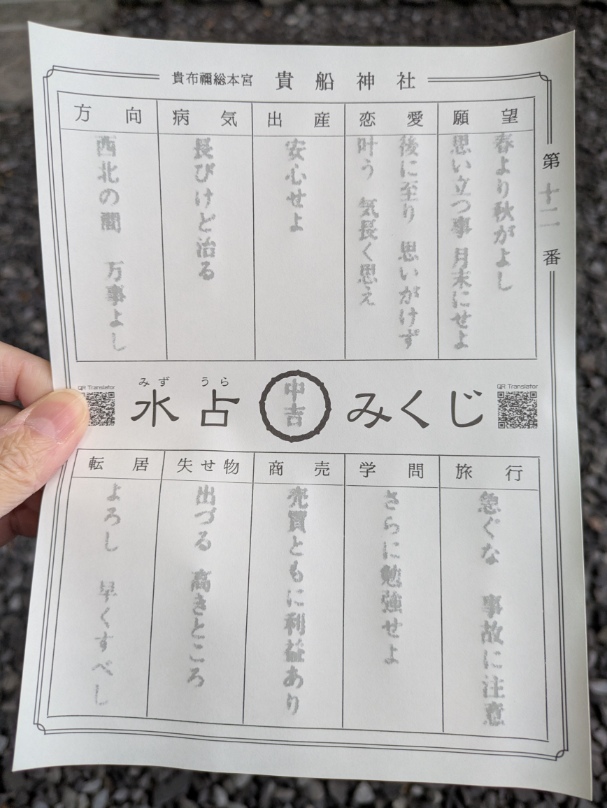 貴布禰総本宮 貴船神社
第十二番
願望
春より秋がよし
思い立つ事 月末にせよ
恋愛
後に至り 思いがけず
叶う 気長く思え
出産
安心せよ
病気
長びけど治る
方向
西北の間 万事よし
QR Translator
みず うら
水占 中吉 みくじ
QR Translator
旅行
急ぐな 事故に注意
学問
さらに勉強せよ
商売
売買ともに利益あり
失せ物
出づる 高きところ
転居
よろし 早くすべし